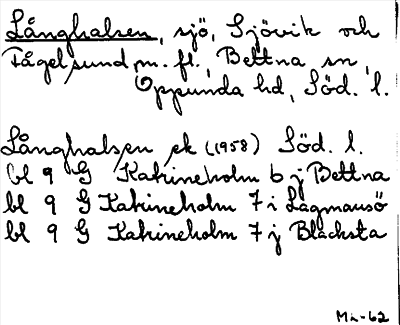 Långhalsen, sjö, Sjövik och
Fågelsund, m. fl., Bettna sn,
Oppunda hd, Söd. l.
Långhalsen ek (1958) Söd. l.
bl 9 G Katrineholm 6 j Bettna
bl 9 G Katrineholm 7 i Lagmansö
bl 9 G Katrineholm 7 j Blacksta
Mi-62